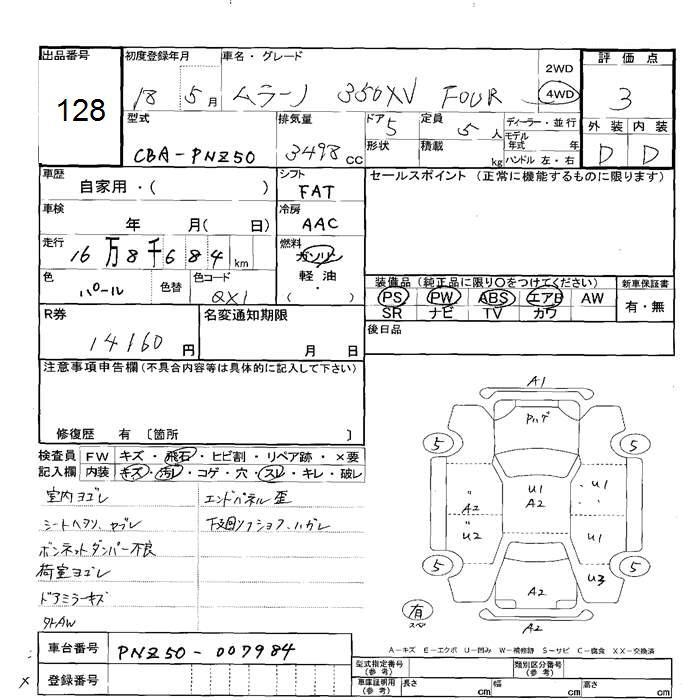 出品番号
128
初度登録年月
18 5月
車名・グレード
ムラーノ 350XV FOUR
2WD
4WD
評価点
3
型式
CBA-PNZ50
排気量
3498 CC
ドア 5
形状
定員 5人
積載 kg
ディーラー・並行
モデル年式 年
ハンドル 左・右
外装 内装
D D
車歴
自家用・( )
シフト
FAT
セールスポイント (正常に機能するものに限ります)
車検
年 月( 日)
冷房
AAC
走行
16万8千684km
燃料
ガソリン
軽油
( ・ )
色
パール
色替
色コード
QX1
装備品 (純正品に限り○をつけてください)
PS PW ABS エアB AW
SR ナビ TV カワ
新車保証書
有・無
R券
14160円
名変通知期限
月 日
後日品
注意事項申告欄 (不具合内容等は具体的に記入して下さい)
修復歴 有 〔箇所 〕
検査員 FW キズ・飛石・ヒビ割・リペア跡・×要
記入欄 内装 キズ・汚レ・コゲ・穴・スレ・キレ・破レ
室内ヨゴレ
シートヘタリ、ヤブレ
ボンネットダンパー不良
荷室ヨゴレ
ドアミラーキズ
社外AW
エンドパネル歪
下廻り
A1
5 5
U1
A2
A2
U2
U1
U1
U3
5 5
A2
有
スペア
A2
A-キズ E-エクボ U-凹み W-補修跡 S-サビ C-腐食 XX-交換済
車台番号 PNZ50-007984
× 登録番号
型式指定番号 (参考)
類別区分番号 (参考)
車庫証明用 (参考) 長さ cm 幅 cm 高さ cm